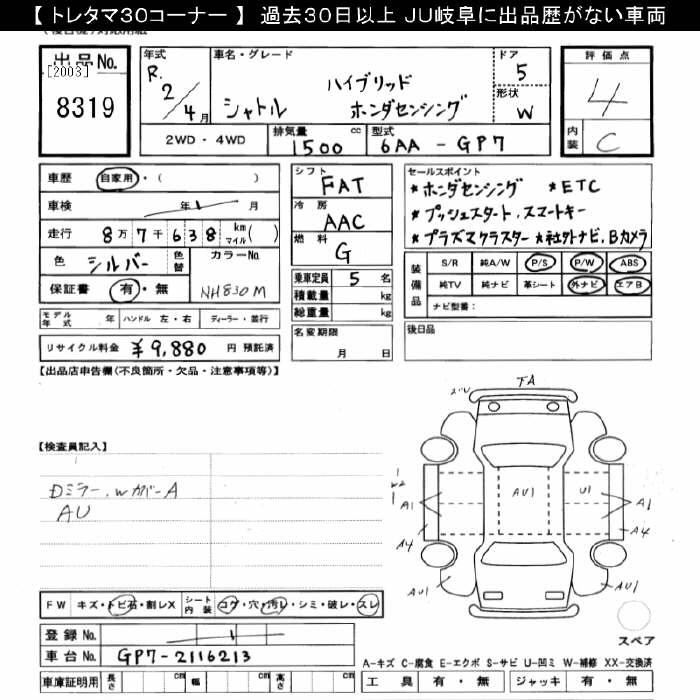 【 トレタマ30コーナー 】 過去30日以上 JU岐阜に出品歴がない車両
出品No.
[2003]
8319
年式
R.2/4月
車名・グレード
シャトル
ハイブリッド
ホンダセンシング
ドア
5
形状
W
評価点
4
内装
C
2WD・4WD
排気量
1500 cc
型式
6AA - GP7
車歴
自家用・( )
車検
年 月
走行
8万7千638 km マイル ( )
色
シルバー
色替
カラーNo.
NH830M
保証書
有・無
シフト
FAT
冷房
AAC
燃料
G
乗車定員 5 名
積載量 kg
総重量 kg
セールスポイント
★ホンダセンシング ★ETC
★プッシュスタート、スマートキー
★プラズマクラスター ★社外ナビ、Bカメラ
装備品
S/R 純A/W P/S P/W ABS
純TV 純ナビ 革シート 外ナビ エアB
ナビ型番:
モデル年式 年 ハンドル 左・右 ディーラー・並行
リサイクル料金 ¥9,880 円 預託済
名変期限
月 日
後日品
【出品店申告欄(不良箇所・欠品・注意事項等)】
【検査員記入】
Dミラー、WカバーA
AU
FA
AU1
U1
A1
A1
A4
A4
AU1
AU1
スペア
FW キズ・トビ石・割レX シート内装 コゲ・穴・汚レ・シミ・破レ・スレ
登録No.
車台No. GP7-2116213
車庫証明用 長さ cm 幅 cm 高さ cm
A-キズ C-腐食 E-エクボ S-サビ U-凹ミ W-補修 XX-交換済
工具 有・無 ジャッキ 有・無